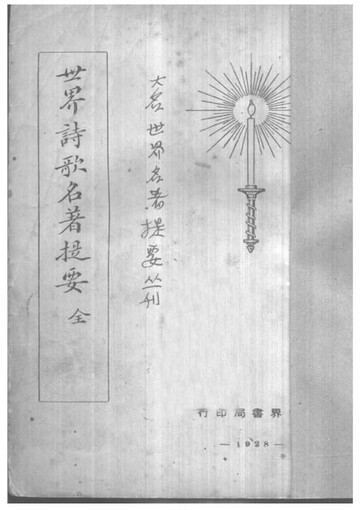 世界詩歌名著提要 全
大名世界名著提要丛刊
界書局印行
— 1928 —